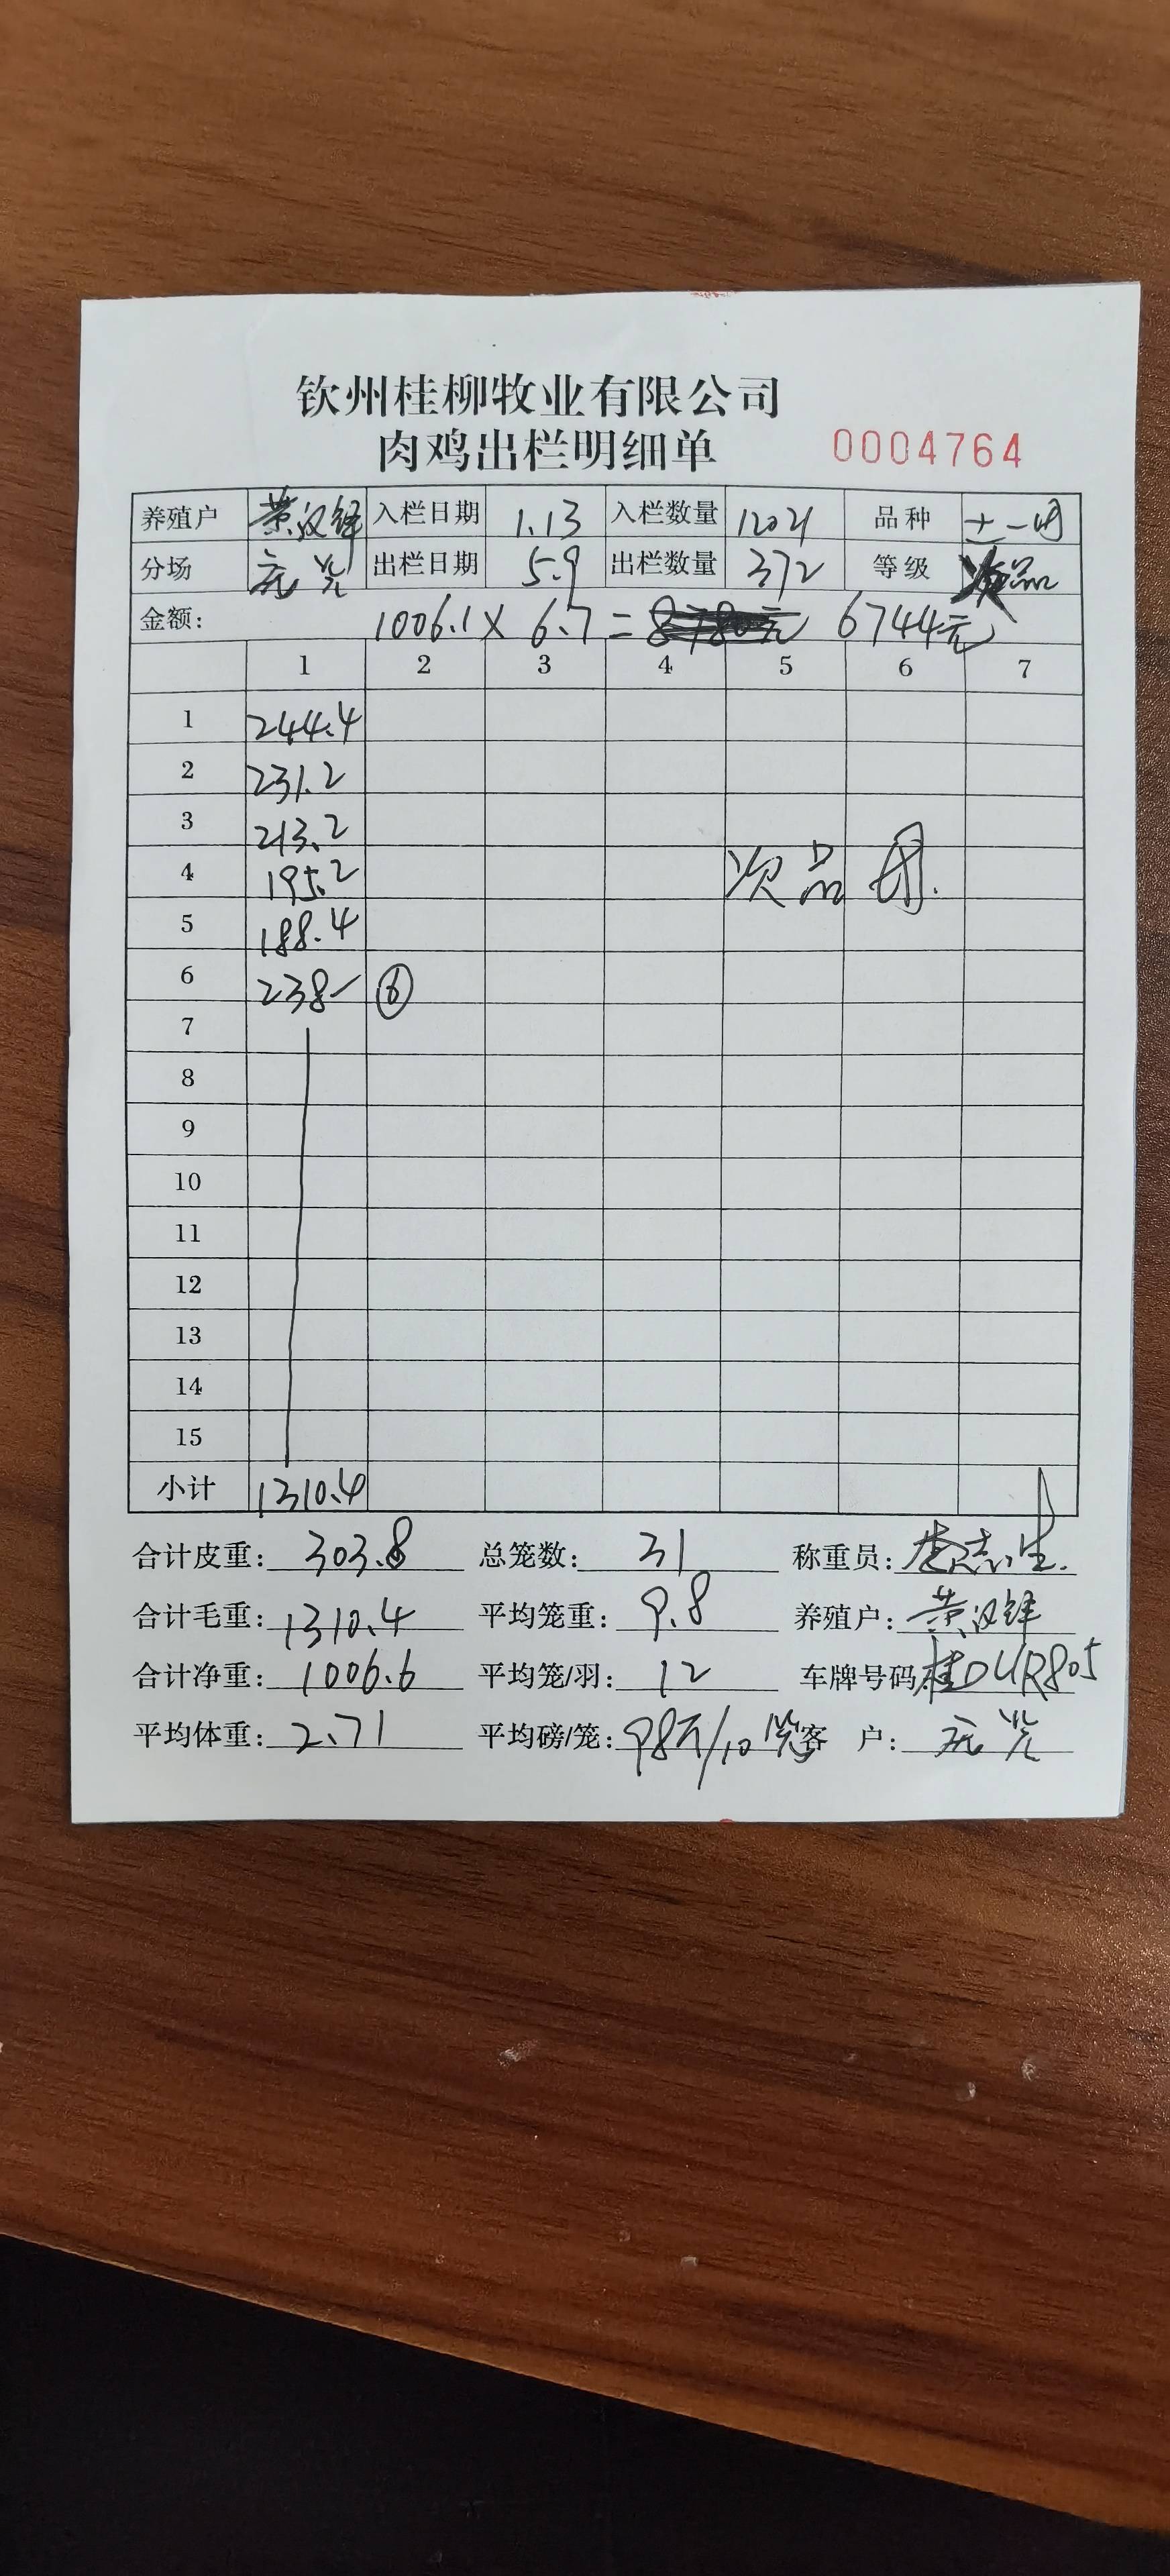 钦州桂柳牧业有限公司
肉鸡出栏明细单 0004764
养殖户 黄汉锋 入栏日期 1.13 入栏数量 12021 品种 土一
分场 出栏日期 5.9 出栏数量 372 等级 次品
金额: 1006.1×6.7= 6744元
1 2 3 4 5 6 7
1 244.4
2 231.2
3 213.2
4 195.2 次品
5 188.4
6 238 ⑥
7
8
9
10
11
12
13
14
15
小计 1310.4
合计皮重: 303.8 总笼数: 31 称重员:
合计毛重: 1310.4 平均笼重: 9.8 养殖户: 黄汉锋
合计净重: 1006.6 平均笼/羽: 12 车牌号码: 桂DUR805
平均体重: 2.71 平均磅/笼: 98斤/10笼 客 户: